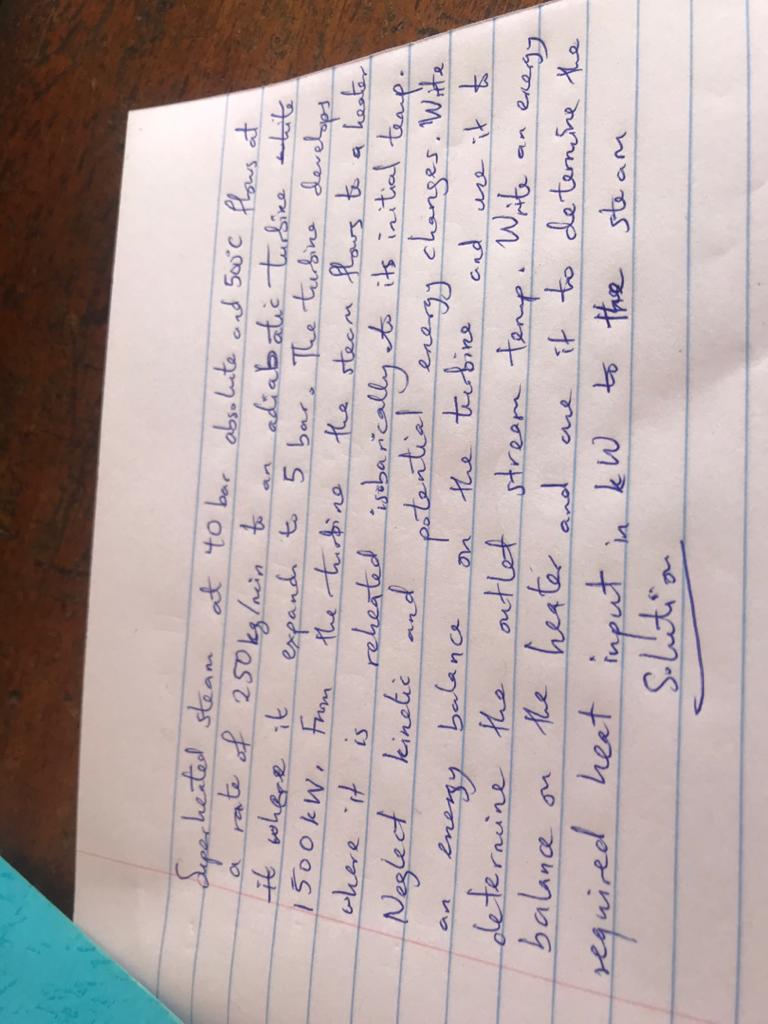 Superheated steam at 40 bar absolute and 500°C flows at
a rate of 250 kg/min to an adiabatic turbine white
it where it expands to 5 bar. The turbine develops
1500 kW. From the turbine the steam flows to a heater
where it is reheated isobarically to its initial temp.
Neglect kinetic and potential energy changes. Write
an energy balance on the turbine and use it to
determine the outlet stream temp. Write an energy
balance on the heater and use it to determine the
required heat input in kW to the steam
Solution